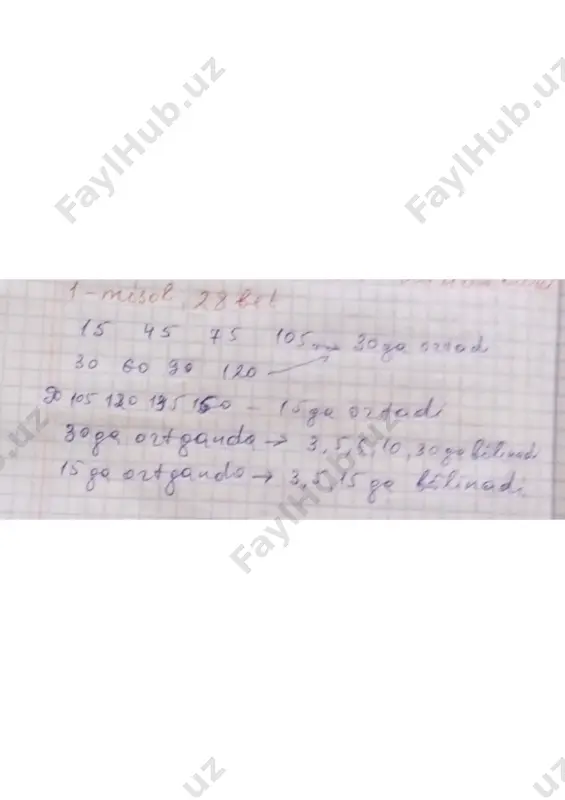 FaylHub.uz
FaylHub.uz
1-misol, 28 bet
15 45 75 105 30 ga ortadi
30 60 90 120
90 105 120 135 150 - 15 ga ortadi
30ga ortganda → 3, 5, 6, 10, 30 ga bölinadi
15 ga ortganda → 3, 5, 15 ga bölinadi
FaylHub.uz
uz
uz